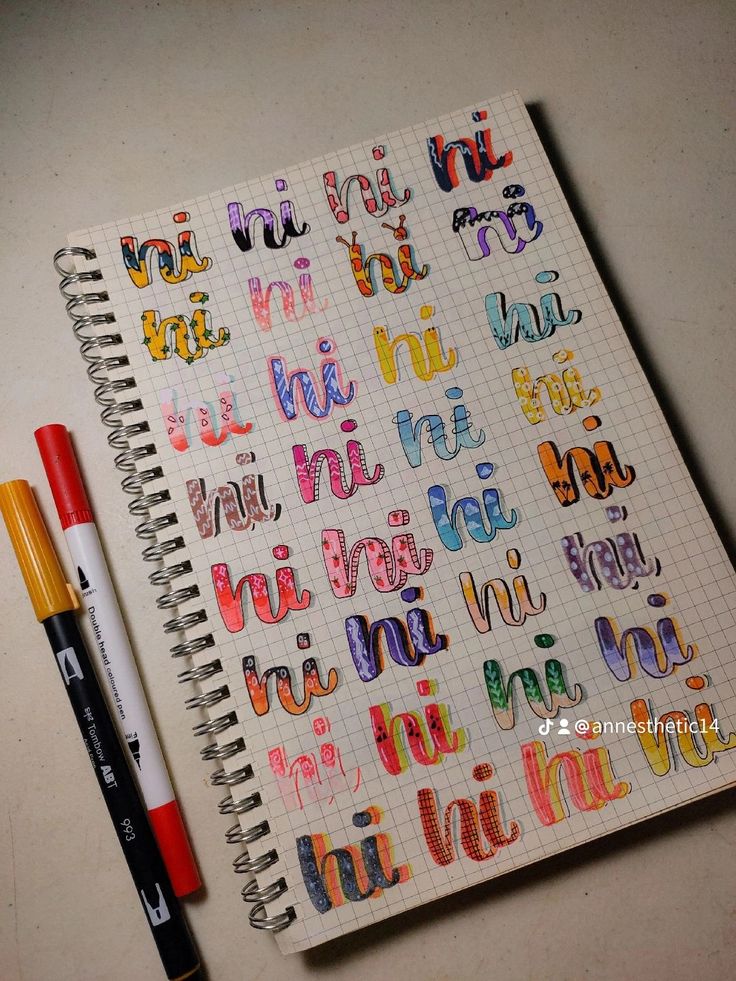 hi hi hi hi
hi hi hi hi
hi hi hi hi
hi hi hi hi
hi hi hi hi
hi hi hi hi
hi hi hi hi
hi hi hi hi
@annesthetic14
Double head
coloured pen
Tombow ABT
993